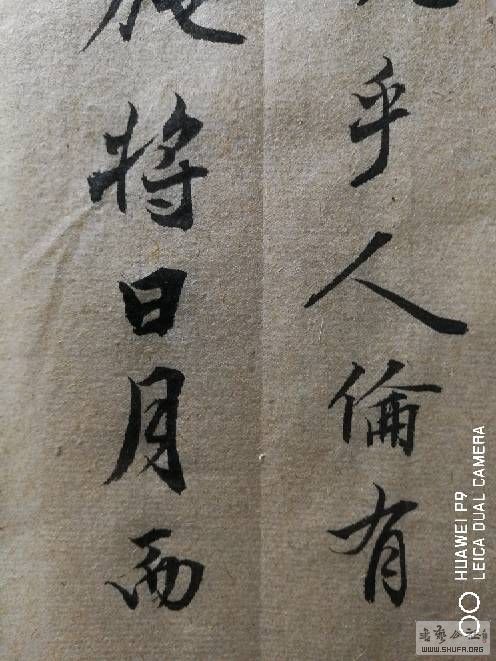 乎人倫有
施将日月而
HUAWEI P9
LEICA DUAL CAMERA
书艺公社
WWW.SHUFA.ORG